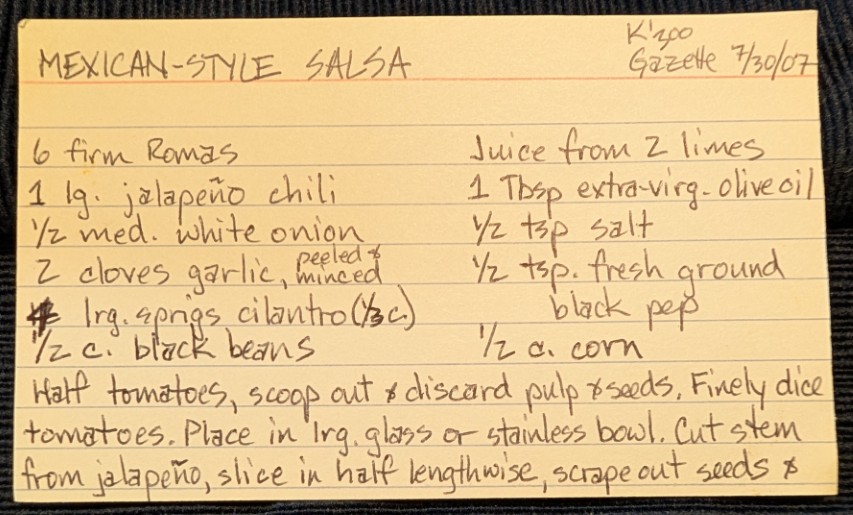 MEXICAN-STYLE SALSA
K'zoo
Gazette 7/30/07
6 firm Romas
1 lg. jalapeño chili
1/2 med. white onion
2 cloves garlic, peeled & minced
lrg. sprigs cilantro (1/3 c.)
1/2 c. black beans
Juice from 2 limes
1 Tbsp extra-virg. olive oil
1/2 tsp salt
1/2 tsp. fresh ground
black pep
1/2 c. corn
Half tomatoes, scoop out & discard pulp & seeds. Finely dice
tomatoes. Place in lrg. glass or stainless bowl. Cut stem
from jalapeño, slice in half lengthwise, scrape out seeds &